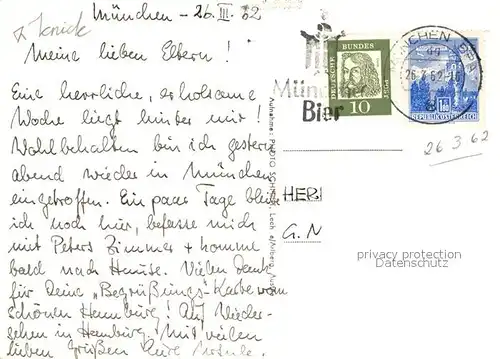 München - 26. III. 62
Meine lieben Eltern!
Eine herrliche, erholsame
Woche liegt hinter mir!
Wohlbehalten bin ich gestern
abend wieder in München
eingetroffen. Ein paar Tage bleibe
ich noch hier, befasse mich
mit Peters Zimmer + komme
bald nach Hause. Vielen Dank
für Deine "Begrüßungs"-Karte vom
schönen Hamburg! Auf Wieder-
sehen in Hamburg. Mit vielen
lieben Grüßen Eure
DEUTSCHE BUNDES
10
Münchner
Bier
MÜNCHEN
26.3.62
REPUBLIK ÖSTERREICH
26 3 62
Aufnahme: PHOTO Lech a/Arlberg,
HER
G. N
privacy protection
Datenschutz